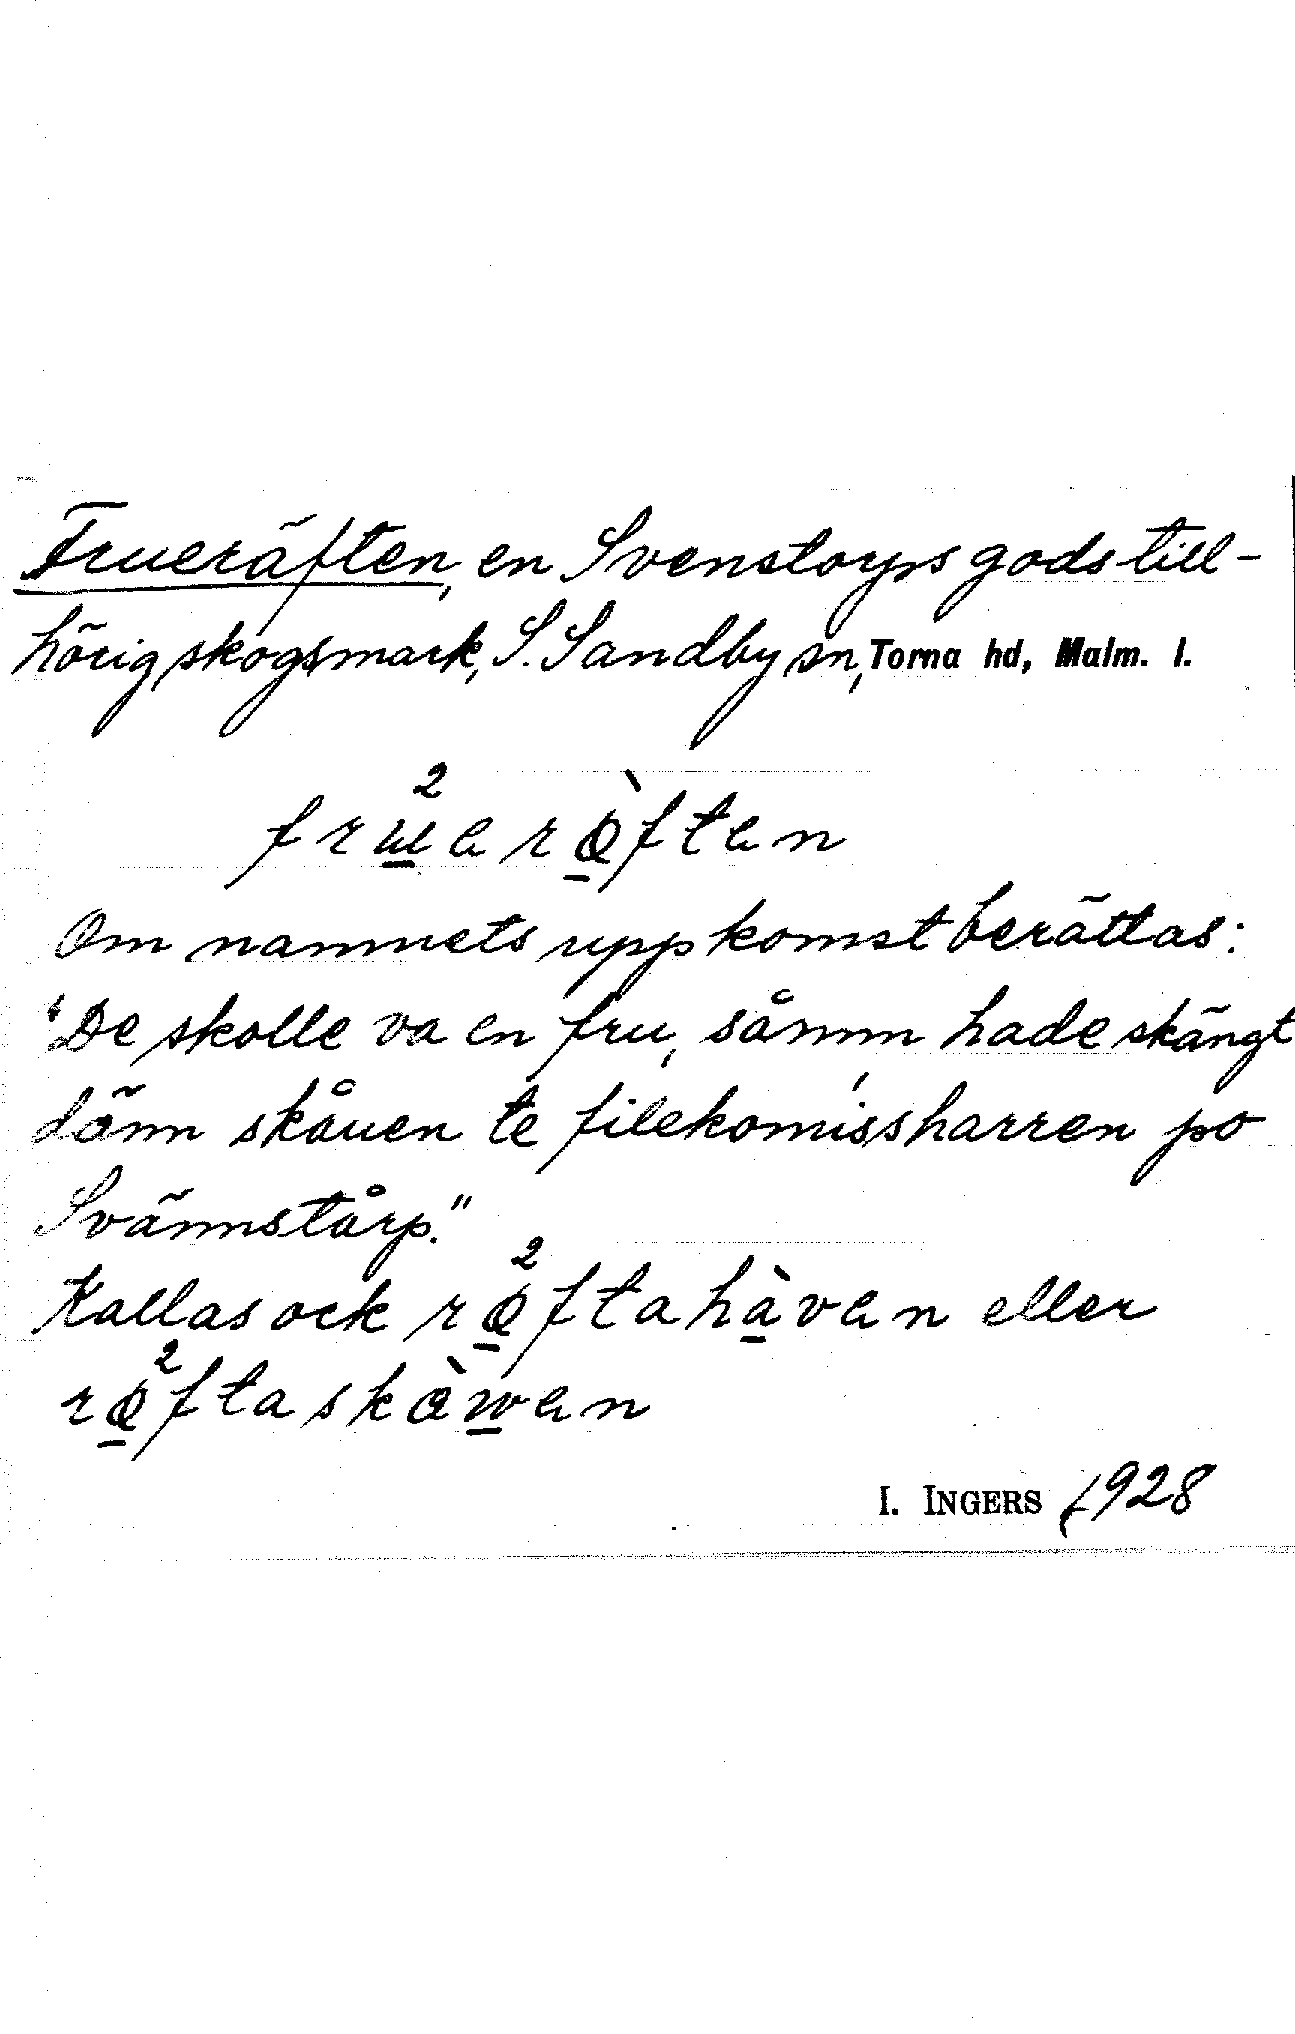 Frueräften, en Svenstorps gods till-
hörig skogsmark, S. Sandby sn, Torna hd, Malm. l.
Om namnets uppkomst berättas:
"De skolle va en fru, såmm hade skängt
dänn skåuen te filekomissharren po
Svännstårp."
Kallas ock eller
I. INGERS 1928